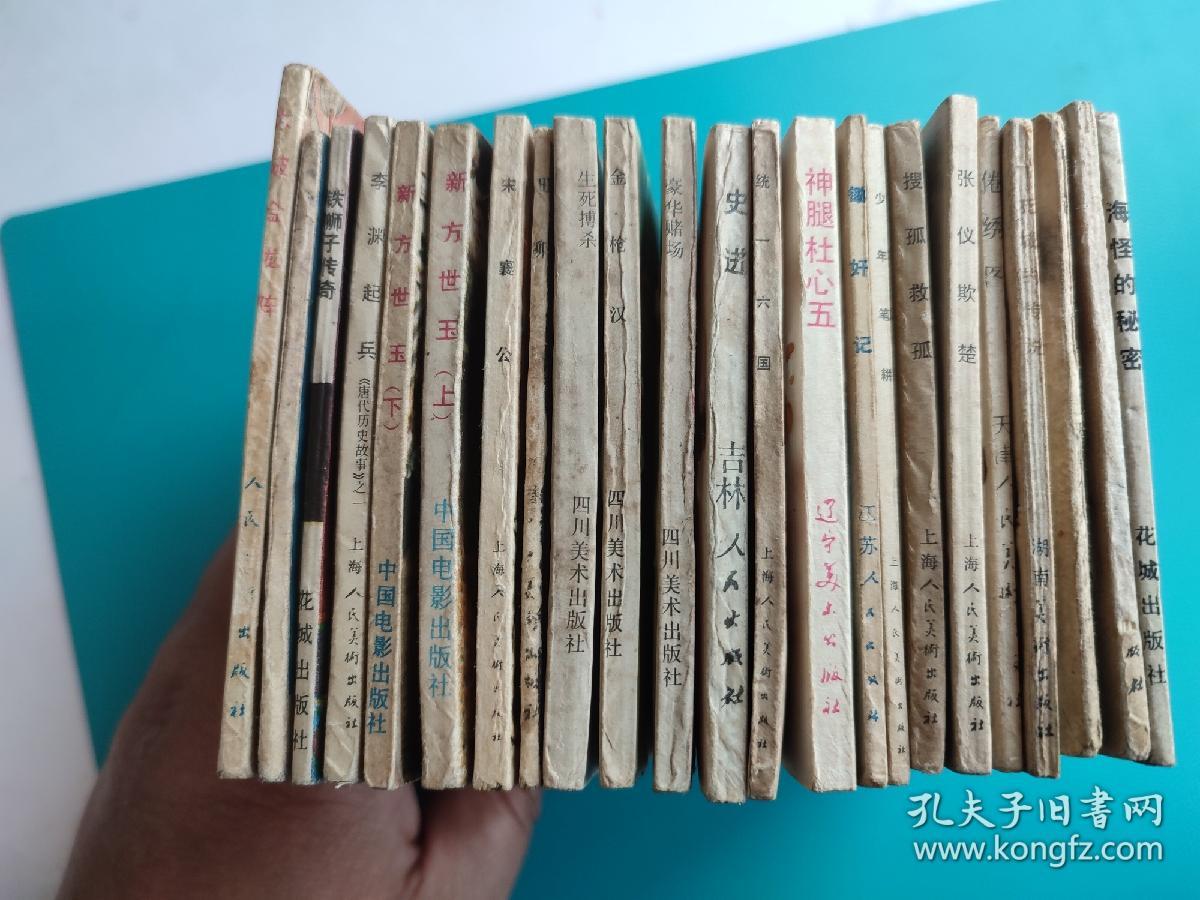 人民
出版社
铁狮子传奇
花城出版社
李渊起兵
《唐代历史故事》之一
上海人民美術出版社
新方世玉（下）
中国电影出版社
新方世玉（上）
中国电影出版社
宋襄公
上海人民美術出版社
生死搏杀
四川美术出版社
金枪汉
四川美术出版社
豪华赌场
四川美术出版社
史进
吉林人民出版社
统一六国
上海人民美術出版社
神腿杜心五
辽宁美术出版社
锄奸记
江苏人民出版社
少年笔耕
上海人民美術出版社
搜孤救孤
上海人民美術出版社
张仪欺楚
上海人民美術出版社
倦绣
天津人民
湖南美术出版社
版社
海怪的秘密
花城出版社
孔夫子旧书网
www.kongfz.com